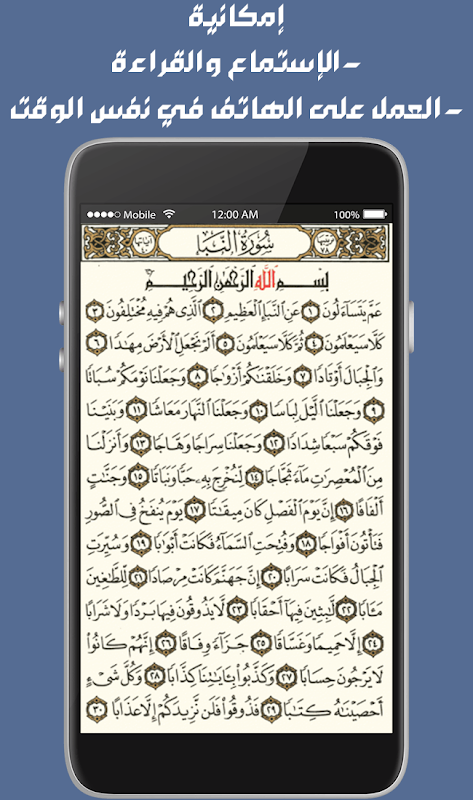 إمكانية
-الإستماع والقراءة
-العمل على الهاتف في نفس الوقت
Mobile 12:00 AM 100%
ترتيبها ٧٨ سُورَةُ النَّبَإِ آياتها ٤٠
بِسْمِ اللَّهِ الرَّحْمَٰنِ الرَّحِيمِ
عَمَّ يَتَسَاءَلُونَ ١ عَنِ النَّبَإِ الْعَظِيمِ ٢ الَّذِي هُمْ فِيهِ مُخْتَلِفُونَ ٣
كَلَّا سَيَعْلَمُونَ ٤ ثُمَّ كَلَّا سَيَعْلَمُونَ ٥ أَلَمْ نَجْعَلِ الْأَرْضَ مِهَٰدًا ٦
وَالْجِبَالَ أَوْتَادًا ٧ وَخَلَقْنَٰكُمْ أَزْوَٰجًا ٨ وَجَعَلْنَا نَوْمَكُمْ سُبَاتًا
٩ وَجَعَلْنَا الَّيْلَ لِبَاسًا ١٠ وَجَعَلْنَا النَّهَارَ مَعَاشًا ١١ وَبَنَيْنَا
فَوْقَكُمْ سَبْعًا شِدَادًا ١٢ وَجَعَلْنَا سِرَاجًا وَهَّاجًا ١٣ وَأَنزَلْنَا
مِنَ الْمُعْصِرَٰتِ مَاءً ثَجَّاجًا ١٤ لِّنُخْرِجَ بِهِ حَبًّا وَنَبَاتًا ١٥ وَجَنَّٰتٍ
أَلْفَافًا ١٦ إِنَّ يَوْمَ الْفَصْلِ كَانَ مِيقَٰتًا ١٧ يَوْمَ يُنفَخُ فِي الصُّورِ
فَتَأْتُونَ أَفْوَاجًا ١٨ وَفُتِحَتِ السَّمَاءُ فَكَانَتْ أَبْوَٰبًا ١٩ وَسُيِّرَتِ
الْجِبَالُ فَكَانَتْ سَرَابًا ٢٠ إِنَّ جَهَنَّمَ كَانَتْ مِرْصَادًا ٢١ لِّلطَّٰغِينَ
مَـَٔابًا ٢٢ لَّٰبِثِينَ فِيهَا أَحْقَابًا ٢٣ لَّا يَذُوقُونَ فِيهَا بَرْدًا وَلَا شَرَابًا
٢٤ إِلَّا حَمِيمًا وَغَسَّاقًا ٢٥ جَزَاءً وِفَاقًا ٢٦ إِنَّهُمْ كَانُوا
لَا يَرْجُونَ حِسَابًا ٢٧ وَكَذَّبُوا بِـَٔايَٰتِنَا كِذَّابًا ٢٨ وَكُلَّ شَيْءٍ
أَحْصَيْنَٰهُ كِتَٰبًا ٢٩ فَذُوقُوا فَلَن نَّزِيدَكُمْ إِلَّا عَذَابًا ٣٠